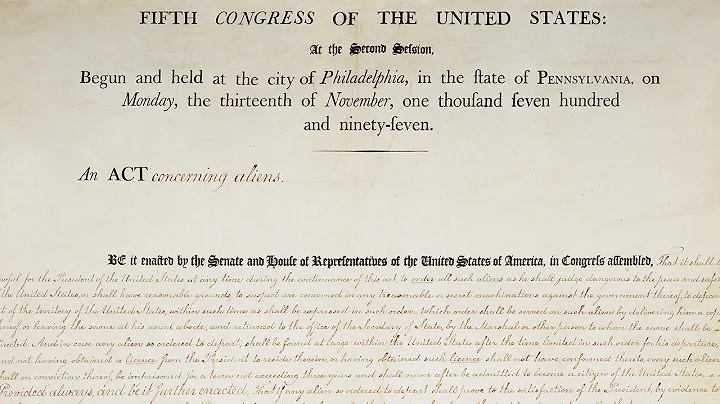 FIFTH CONGRESS OF THE UNITED STATES:
At the Second Session,
Begun and held at the city of Philadelphia, in the ſtate of PENNSYLVANIA, on
Monday, the thirteenth of November, one thouſand ſeven hundred
and ninety-ſeven.
An ACT concerning aliens.
BE it enacted by the Senate and House of Representatives of the United States of America, in Congreſs aſſembled, That it shall b
awful for the President of the United States at any time during the continuance of this act, to order all such aliens as he shall judge dangerous to the peace and safet
the United States, or shall have reasonable grounds to suspect are concerned in any treasonable or secret machinations against the government thereof, to depar
t of the territory of the United States, within such time as shall be expressed in such order. which order shall be served on such alien by delivering him a cop
hereof or leaving the same at his usual abode, and returned to the office of the Secretary of State, by the Marshal or other person to whom the same shall be
irected. And in case any alien, so ordered to depart, shall be found at large within the United States after the time limited in such order for his departure,
nd not having obtained a licence from the President to reside therein, or having obtained such licence shall not have conformed thereto, every such alien
hall on conviction thereof, be imprisoned for a term not exceeding three years and shall never after be admitted to become a citizen of the United States,
Provided always, and be it further enacted, That if any alien so ordered to depart shall prove to the satisfaction of the President, by evidence to